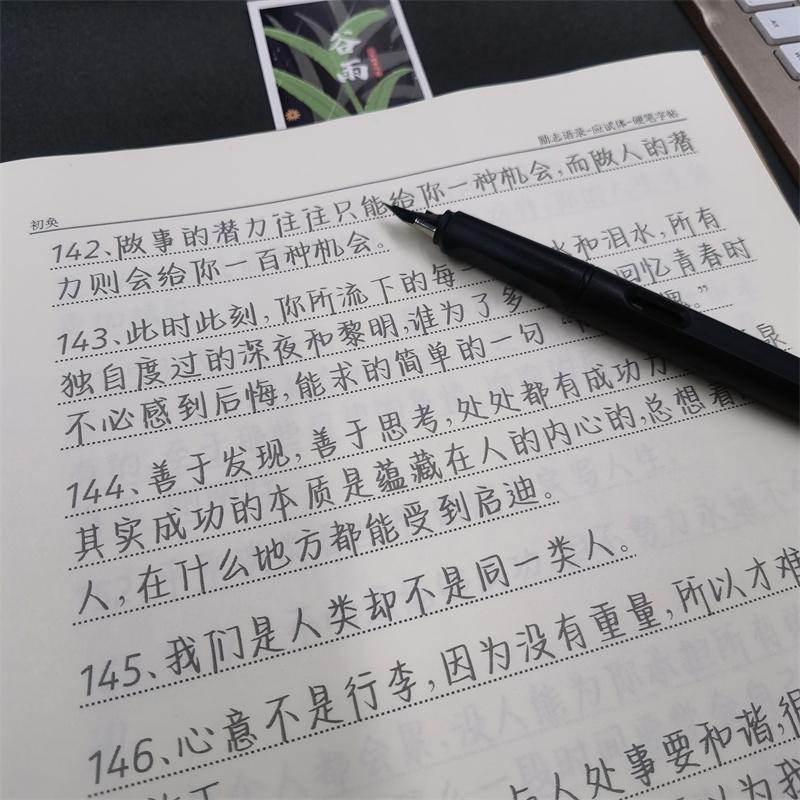 谷雨
励志语录-应试体-硬笔字帖
初奂
142、做事的潜力往往只能给你一种机会,而做人的潜
力则会给你一百种机会。
143、此时此刻,你所流下的每一 水和泪水,所有
独自度过的深夜和黎明,谁为了多 回忆青春时
不必感到后悔,能求的简单的一句“ 。”
144、善于发现,善于思考,处处都有成功方 泉
其实成功的本质是蕴藏在人的内心的,总想着
人,在什么地方都能受到启迪。
145、我们是人类却不是同一类人。
146、心意不是行李,因为没有重量,所以才难
与人处事要和谐,很